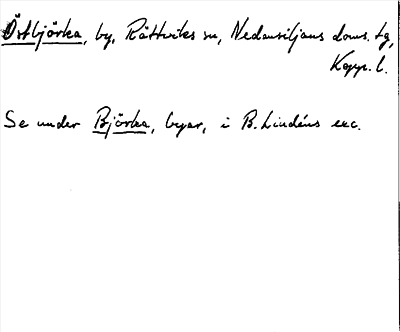 Östbjörka, by, Rättviks sn, Nedansiljans doms. tg,
Kopp. l.
Se under Björka, byar, i B. Lindéns exc.